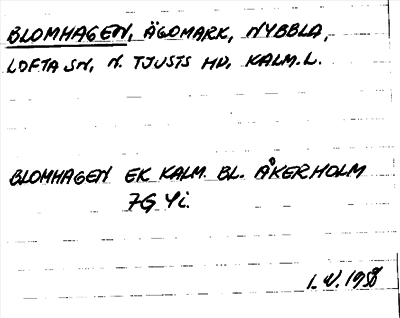 BLOMHAGEN, ÄGOMARK, NYBBLA,
LOFTA SN, N. TJUSTS HD, KALM.L.
BLOMHAGEN EK KALM. BL. ÅKERHOLM
7G 4i.
1.V.1958